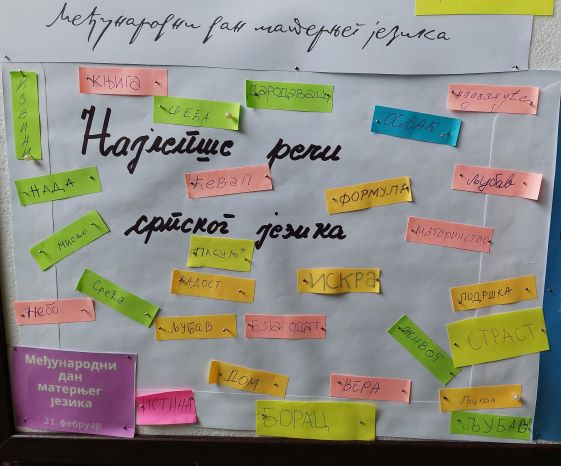 Међународни дан матерњег језика
ИЗВИНИ
КЊИГА
СРЕЋА
ЧАРОБАЦ
ОБЛАК
Најлепше речи
НАДА
ЋЕВАП
ФОРМУЛА
Љубав
српског језика
МИСАО
МАТЕРИНСТВО
ПАСУЉ
РАДОСТ
ИСКРА
ПОДРШКА
Небо
Срећа
ЉУБАВ
БЛАГОДАТ
ЖИВОТ
СТРАСТ
Међународни
дан
матерњег
језика
21. фебруар
ДОМ
ВЕРА
Љубав
ИСТИНА
БОРАЦ
ЉУБАВ